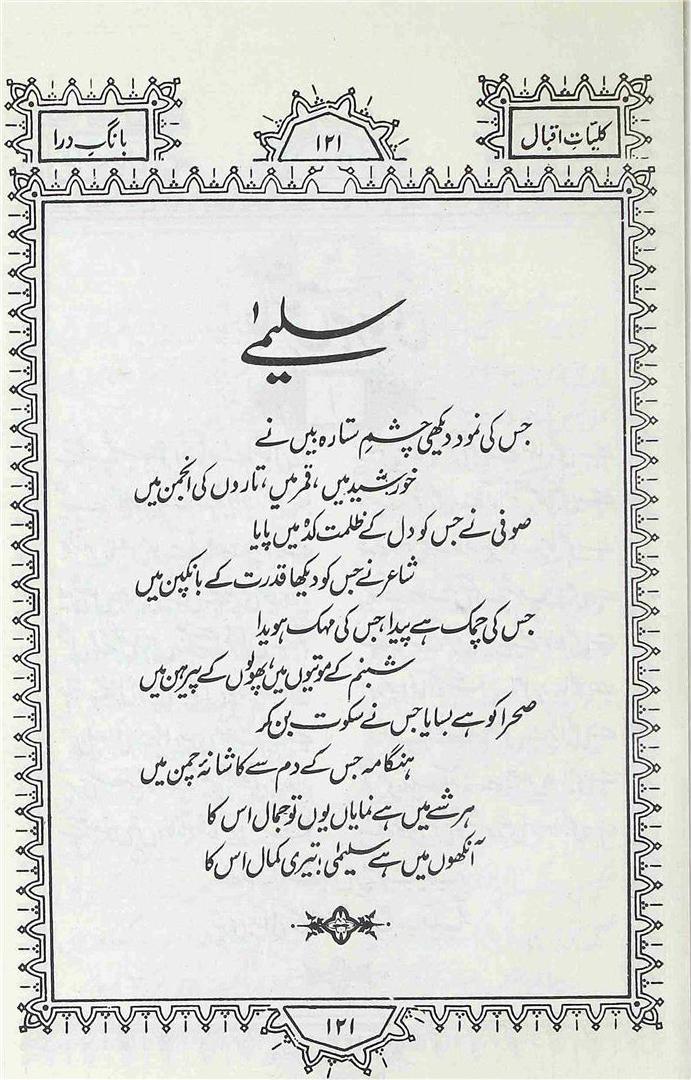 کلیاتِ اقبال
۱۲۱
بانگِ درا
سلیمیٰ
جس کی نمود دیکھی چشمِ ستارہ بیں نے
خورشید میں، قمر میں، تاروں کی انجمن میں
صوفی نے جس کو دل کے ظلمت کدے میں پایا
شاعر نے جس کو دیکھا قدرت کے بانکپن میں
جس کی چمک ہے پیدا، جس کی مہک ہویدا
شبنم کے موتیوں میں، پھولوں کے پیرہن میں
صحرا کو ہے بسایا جس نے سکوت بن کر
ہنگامہ جس کے دم سے کاشانۂ چمن میں
ہر شے میں ہے نمایاں یوں تو جمال اس کا
آنکھوں میں ہے سلیمیٰ! تیری کمال اس کا
۱۲۱